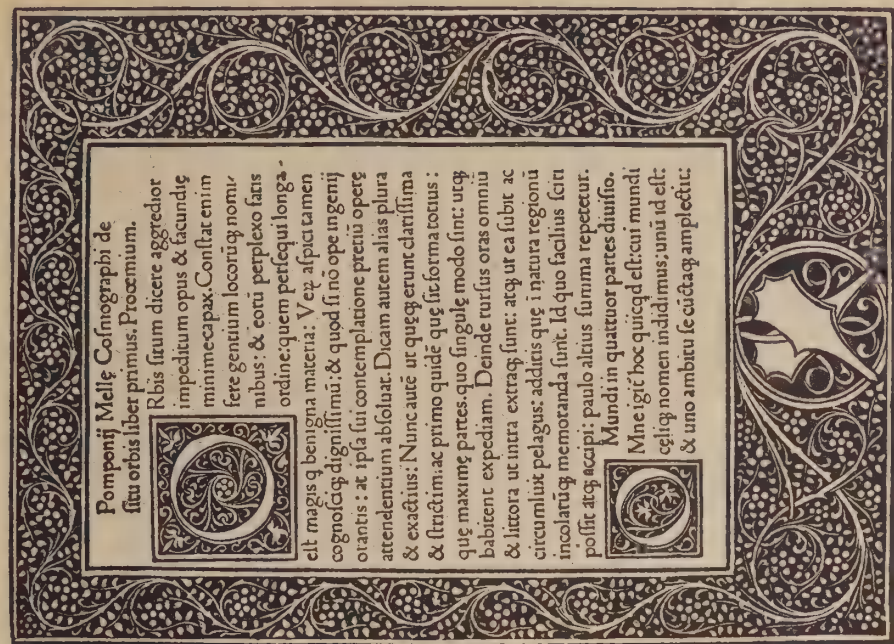 Pomponij Mellę Cosmographi de
situ orbis liber primus. Prooemium.
ORbis situm dicere aggredior
impeditum opus & facundię
minime capax. Constat enim
fere gentium locorūq; nomi-
nibus: & eorū perplexo satis
ordine: quem persequi longa-
est magis q̄ benigna materia: Veꝝ aspici tamen
cognosciq; dignissimū: & quod si nō ope ingenij
orantis: at ipsa sui contemplatione pretiū operę
attendentium absoluat. Dicam autem alias plura
& exactius: Nunc autē ut quęq; erunt clarissima
& strictim: ac primo quidē quę sit forma totius:
quę maximę partes. quo singulę modo sint: utq;
habitent expediam. Deinde rursus oras omniū
& littora ut intra extraq; sunt: atq; ut ea subit ac
circumluit pelagus: additis quę ī natura regionū
incolarūq; memoranda sunt. Id quo facilius sciri
possit atq; accipi: paulo altius summa repetetur.
Mundi in quattuor partes diuisio.
OMne igit̄ hoc quicqd est: cui mundi
cęliq; nomen indidimus: unū id est:
& uno ambitu se cūctaq; amplectit̄: